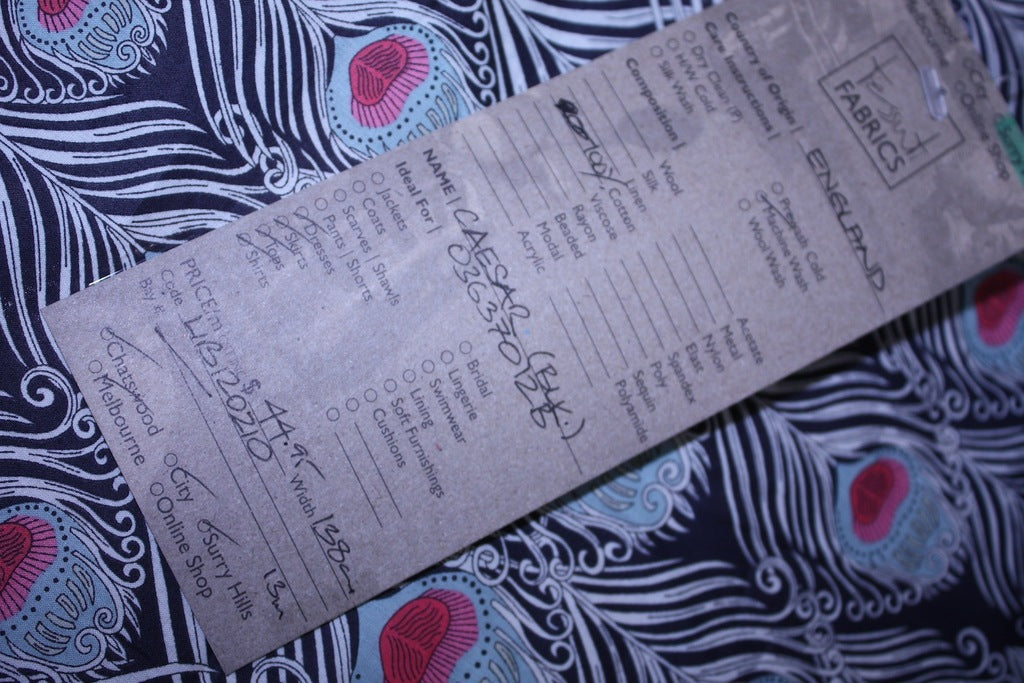 Tessuti
FABRICS
City
Online Shop
Country of Origin | ENGLAND
Care Instructions |
Dry Clean (P)
H/W Cold
Silk Wash
Prewash Cold
Machine Wash
Wool Wash
Composition |
Wool
Silk
Linen
100% Cotton
Viscose
Rayon
Beaded
Modal
Acrylic
Acetate
Metal
Nylon
Elast
Spandex
Poly
Sequin
Polyamide
NAME | CAESAR (BLK.)
036370 12B
Ideal For |
Jackets
Coats
Scarves | Shawls
Pants | Shorts
Dresses
Skirts
Tops
Shirts
Bridal
Lingerie
Swimwear
Lining
Soft Furnishings
Cushions
PRICE(m) $ 44.95 Width 138cm
Code LIB120210 13m
Bay #
Chatswood City Surry Hills
Melbourne Online Shop